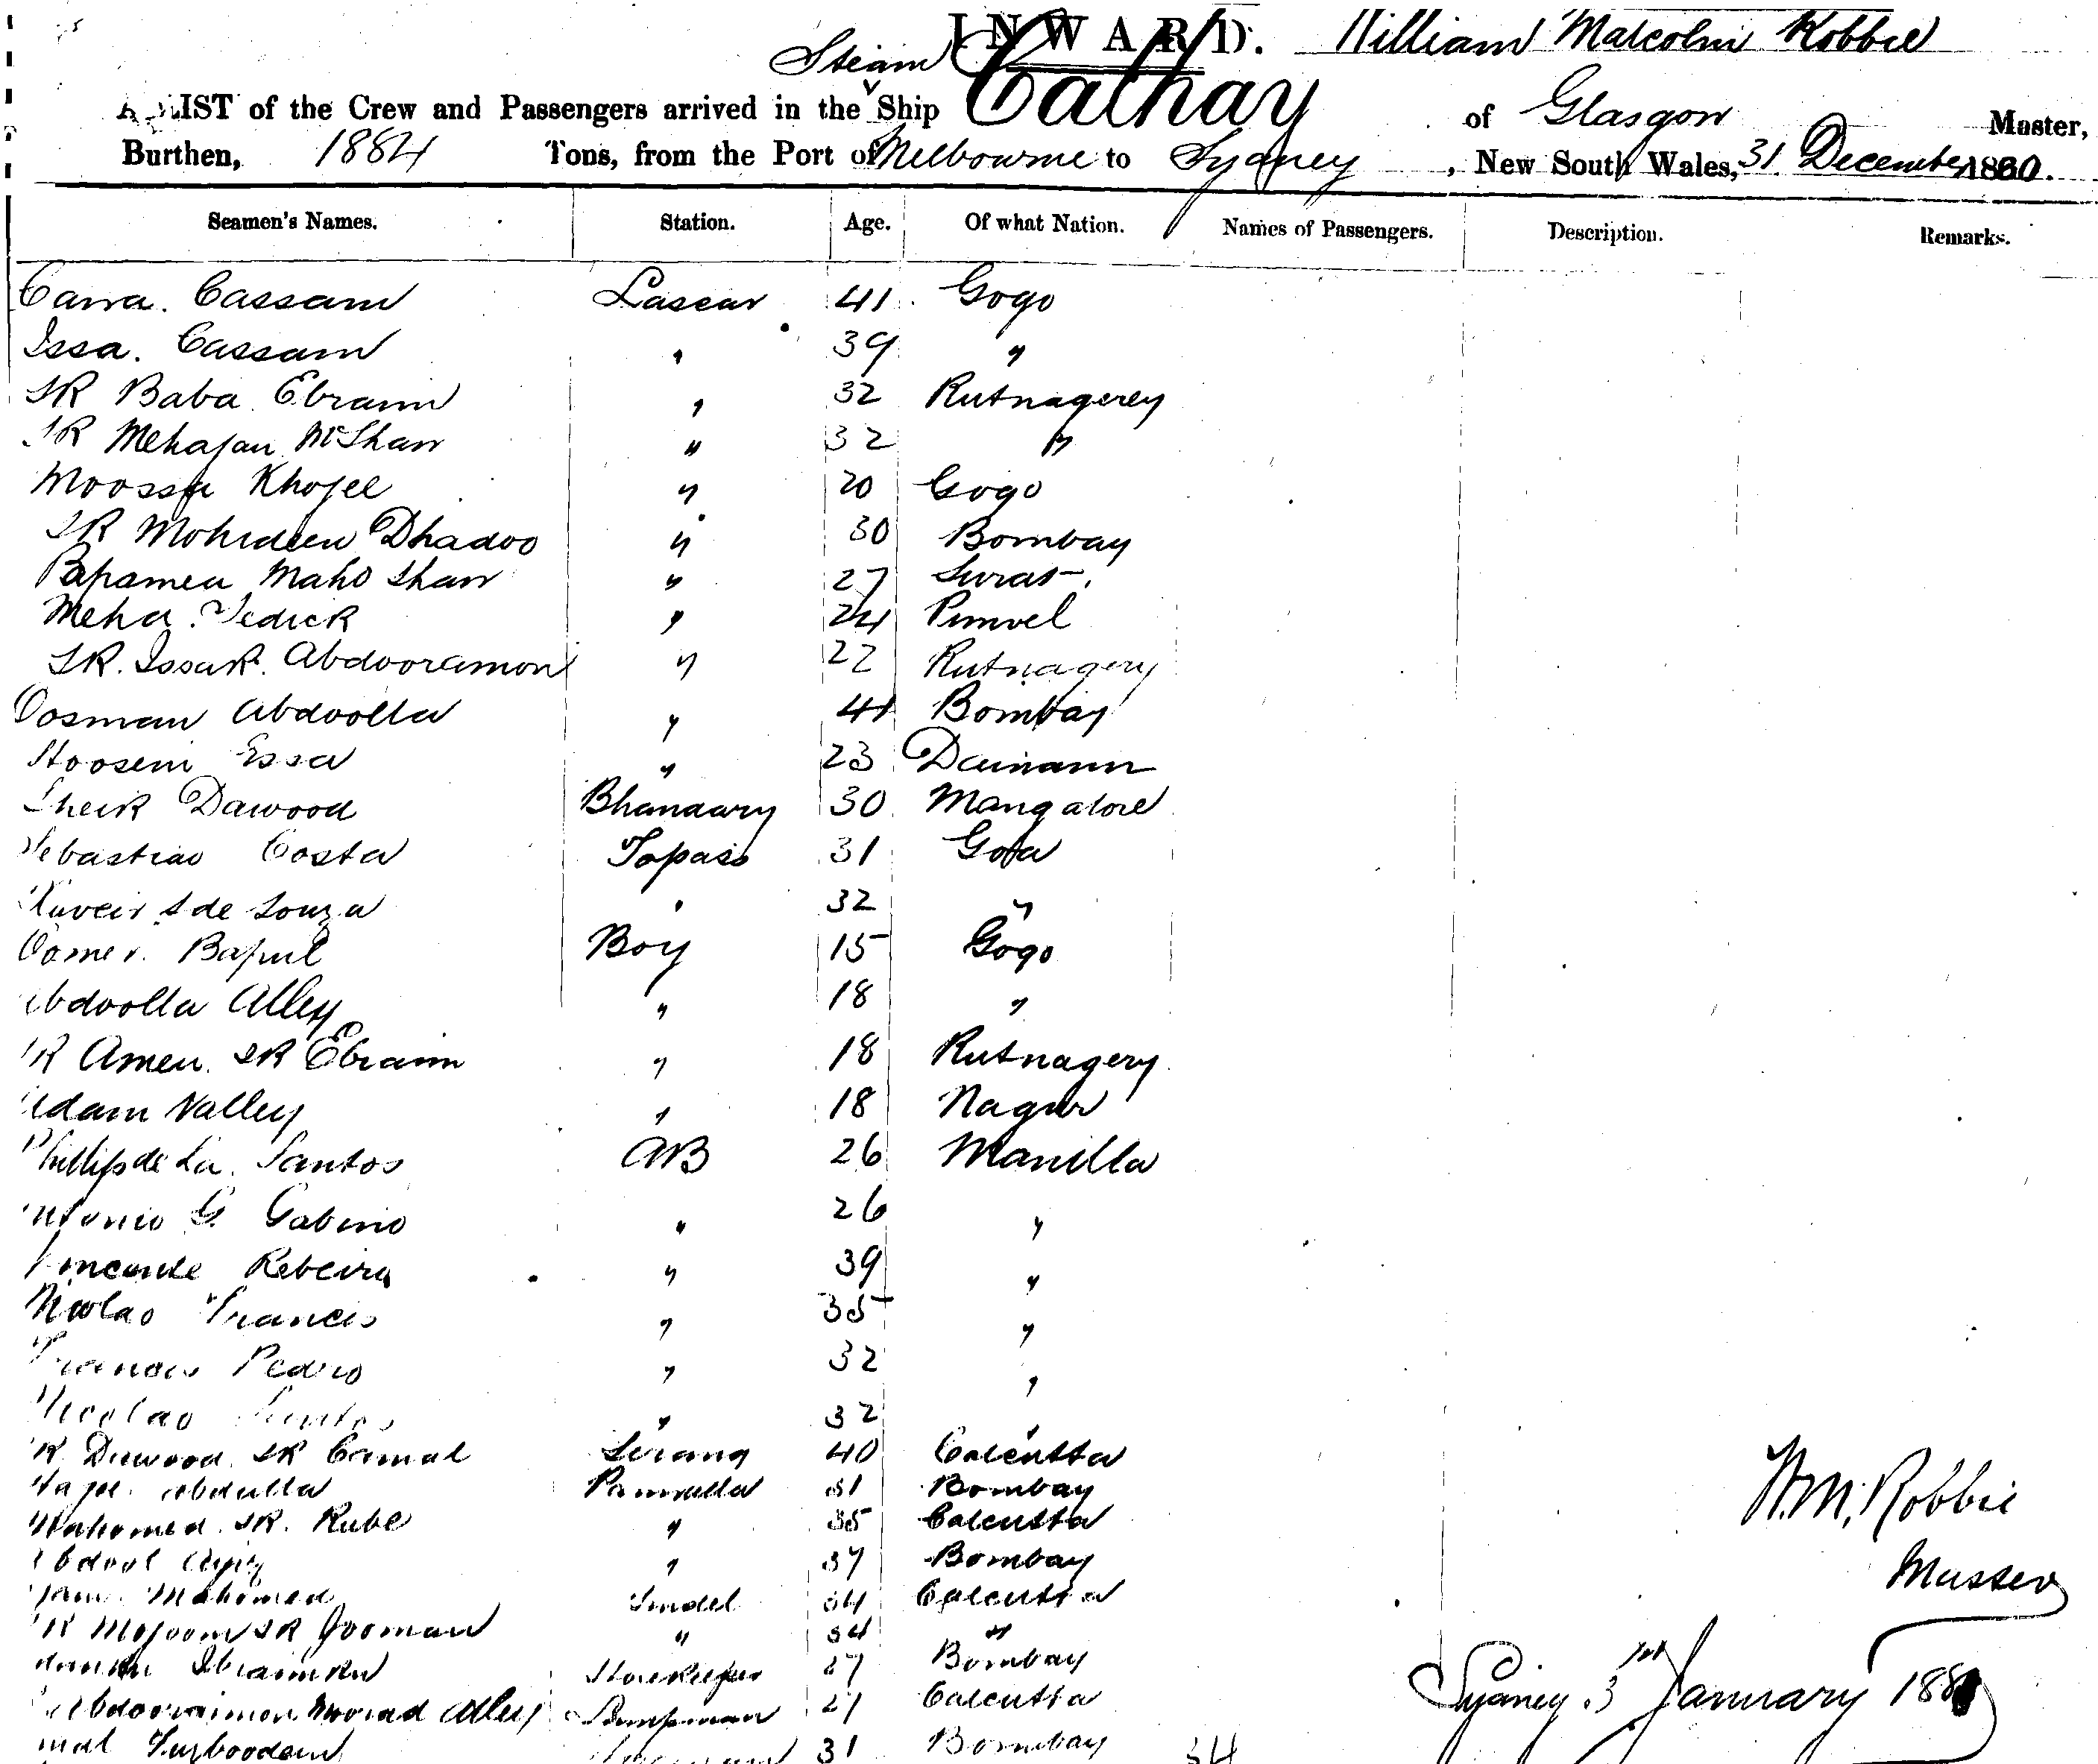 INWARD. William Malcolm Robbie
Steam
A LIST of the Crew and Passengers arrived in the Ship Cathay of Glasgow Master,
Burthen, 1884 Tons, from the Port of Melbourne to Sydney, New South Wales, 31 December 1880.
Seamen's Names. Station. Age. Of what Nation. Names of Passengers. Description. Remarks.
Cassam Lascar 41 Gogo
Issa. Cassam " 39 "
SK Baba Ebraim " 32 Rutnagerey
SK " 32 "
Moossa Khojee " 20 Gogo
SK Mohideen Dhadoo " 30 Bombay
" 27 Surat
Meha " 24
SK. Issak. Abdooramon " 22 Rutnagery
Oosman Abdoolla " 41 Bombay
Hoosein Essa " 23 Damaun
Sheik Dawood Bhandary 30 Mangalore
Sebastiao Costa Topass 31 Goa
de Souza " 32 "
Boy 15 Gogo
Abdoolla Alley " 18 "
SK Amen. SK Ebraim " 18 Rutnagery
Adam Valley " 18
Phillip de La Santos AB 26 Manilla
Antonio G. Gabino " 26 "
Rebeira " 39 "
Nicolao Francis " 35 "
Francis Pedro " 32 "
Nicolao Santos " 32 "
SK Dawood SK Camal Serang 40 Calcutta
Abdulla 31 Bombay
Mahomed SK. " 35 Calcutta
Abdool " 37 Bombay
Mahomed Tindel 34 Calcutta
SK SK Jooman " 34 "
Storekeeper 27 Bombay
Alley 27 Calcutta
31 Bombay
34
W. M. Robbie
Master
Sydney 3 January 1881